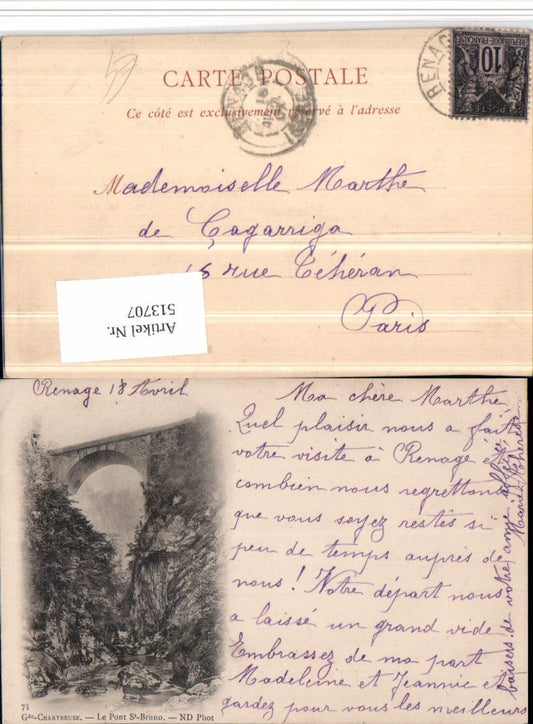 CARTE POSTALE
Ce côté est exclusivement réservé à l'adresse
RENAG
10
REPUBLIQUE FRANÇAISE
POSTE
Mademoiselle Marthe
de Çagarriga
16 rue Téhéran
Paris
Artikel Nr.
513707
Renage 18 Avril
Ma chère Marthe
Quel plaisir nous a fait
votre visite à Renage et
combien nous regrettons
que vous soyez restés si
peu de temps auprès de
nous! Notre départ nous
a laissé un grand vide
Embrassez de ma part
Madeleine et Jeannie et
gardez pour vous les meilleurs
baisers de votre amie
Marie
75
Gde-CHARTREUSE. — Le Pont St-Bruno. — ND Phot